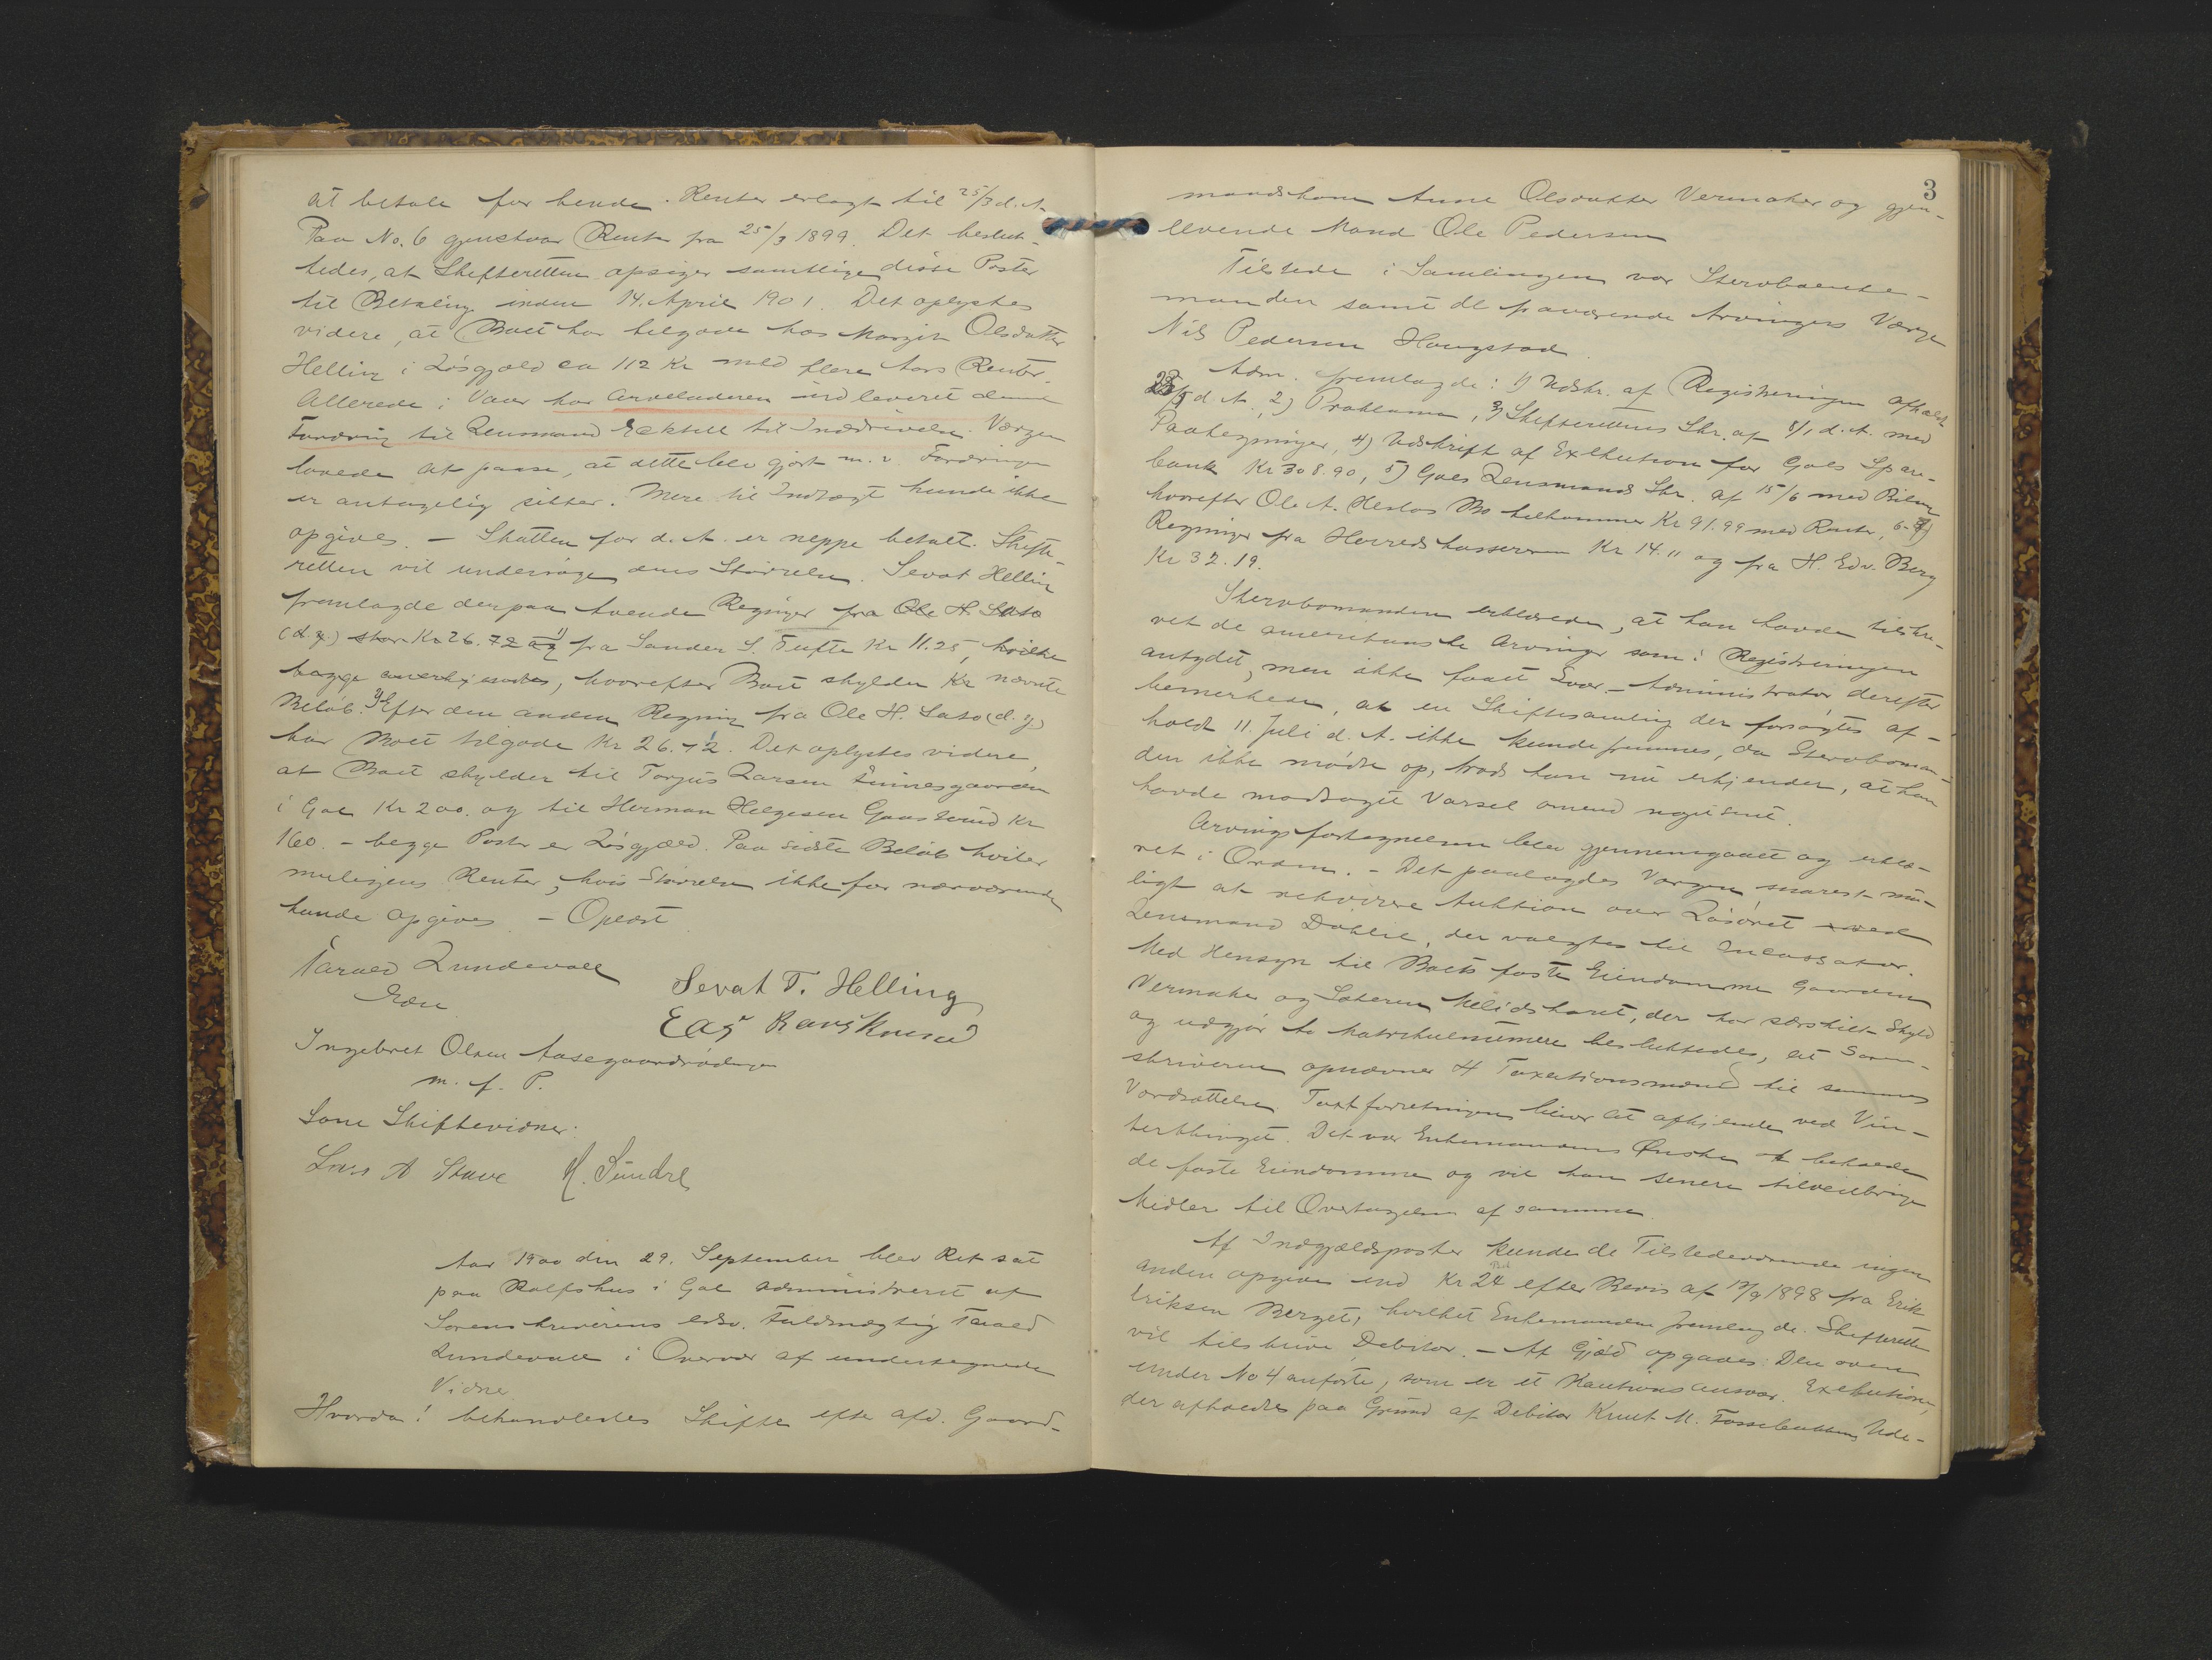 at betale for hende. Renter erlagt til 25/3 d. A.
Paa No. 6 gjenstaar Rente fra 25/3 1899. Det beslut-
tedes, at Skifteretten opsiger samtlige disse Poster
til Betaling inden 14. April 1901. Det oplystes
videre, at Boet har tilgode hos Margit Olsdatter
Helling i Løsgjæld ca 112 Kr med flere Aars Renter.
Allerede i Vaar har Arveladeren indleveret denne
Fordring til Lensmand til Inddrivelse. Værgen
lovede at paase, at dette blev gjort m. v. Fordringen
er antagelig sikker. Mere til Indtægt kunde ikke
opgives. – Skatten for d. A. er neppe betalt. Skifte-
retten vil undersøge dens Størrelse. Sevat Helling
fremlagde derpaa tvende Regninger fra Ole H. Sato
(d. y.) stor Kr 26.72 og 1) fra Sander S. Tufte Kr 11.25, hvilke
begge anerkjendtes, hvorefter Boet skylder Kr nævnte
Beløb. 2) Efter den anden Regning fra Ole H. Sato (d. y.)
har Boet tilgode Kr 26.12. Det oplystes videre,
at Boet skylder til Torgus Larsen
i Gol Kr 200. og til Herman Helgesen Kr
160. – begge Poster er Løsgjæld. Paa sidste Beløb hviler
muligens Renter, hvis Størrelse ikke for nærværende
kunde opgives – Oplæst.
Tarald Lundevall
Edsv.
Sevat T. Helling
Ingebret Olsen
m. f. P.
Som Skiftevidner:
Lars A Stave N. Sundre
Aar 1900 den 29. September blev Ret sat
paa Rolfshus i Gol administreret af
Sorenskriverens edsv. Fuldmægtig Tarald
Lundevall i Overvær af undertegnede
Vidner.
Hvorda: behandledes Skifte efter afd. Gaard-
3
mandskone Anne Olsdatter Vermaker og gjen-
levende Mand Ole Pedersen
Tilstede i Samlingen var Stervboenke-
manden samt de fraværende Arvingers Værge
Nils Pedersen Haugstad.
Adm. fremlagde: 1) Udskr. af Registreringen afholdt
d. A., 2) Proklama, 3) Skifterettens Skr. af 8/1 d. A. med
Paategninger, 4) Udskrift af Exekution for Gols Spare-
bank Kr 308.90, 5) Gols Lensmands Skr. af 15/6 med Bilag
hvorefter Ole A. Heslas Bo tilkommer Kr 91.99 med Renter, 6-7)
Regninger fra Herredskassereren Kr 14. " og fra H. Edv. Berg
Kr 32.19.
Stervbomanden erklærede, at han havde tilskre-
vet de amerikanske Arvinger som i Registreringen
antydet, men ikke faaet Svar. – Administrator, derefter
bemerkede, at en Skiftesamling der forsøgtes af-
holdt 11. Juli d. A. ikke kunde fremmes, da Stervboman-
den ikke mødte op, trods han nu erkjender, at han
havde modtaget Varsel omend noget sent.
Arvingsfortegnelsen blev gjennemgaaet og erklæ-
ret i Orden. – Det paalagdes Værgen snarest mu-
ligt at rekvirere Auktion over Løsøret ved
Lensmand Dahle, der valgtes til Incassator.
Med Hensyn til Boets faste Eiendomme Gaarden
Vermaker og Sæteren, der har særskilt Skyld
og udgjør to Matrikulnumere besluttedes, at Soren-
skriveren opnævner 4 Taxationsmænd til sammes
Værdsættelse. Taxtforretningen bliver at afhjemle ved Vin-
terthinget. Det var Enkemandens Ønske at beholde
de faste Eiendomme og vil han senere tilveiebringe
Midler til Overtagelsen af samme.
Af Indgjældsposter kunde de Tilstedeværende ingen
anden opgive end Kr 24 efter Bevis af 12/9 1898 fra Erik
Eriksen Berget, hvilket Enkemanden fremlagde. Skifteretten
vil tilskrive Debitor. – Af Gjæld opgaves: Den oven
under No 4 anførte, som er et Kautionsansvar. Exekutionen,
der afholdtes paa Grund af Debitor Knut M. Ude-